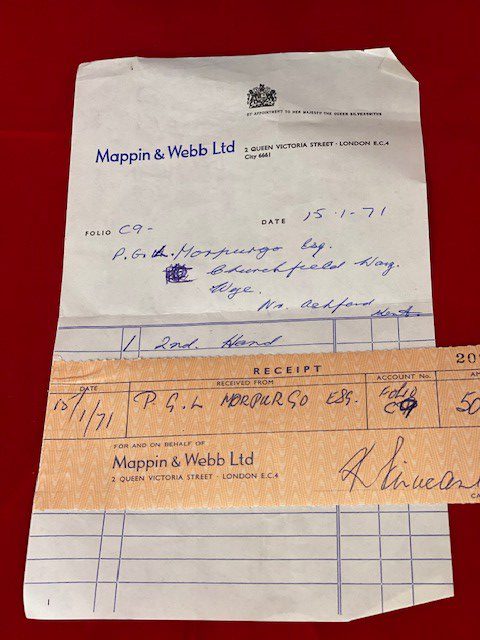 BY APPOINTMENT TO HER MAJESTY THE QUEEN SILVERSMITHS
Mappin & Webb Ltd 2 QUEEN VICTORIA STREET · LONDON E.C.4
City 6661
FOLIO C9- DATE 15-1-71
P.G.L. Morpurgo Esq.
Churchfield Way.
Wye.
Nr. Ashford
Kent
1 2nd. Hand
RECEIPT 20
DATE RECEIVED FROM ACCOUNT No. AM
15/1/71 P G L MORPURGO ESQ. FOLIO C9 50
FOR AND ON BEHALF OF
Mappin & Webb Ltd
2 QUEEN VICTORIA STREET · LONDON E.C.4
CA
1